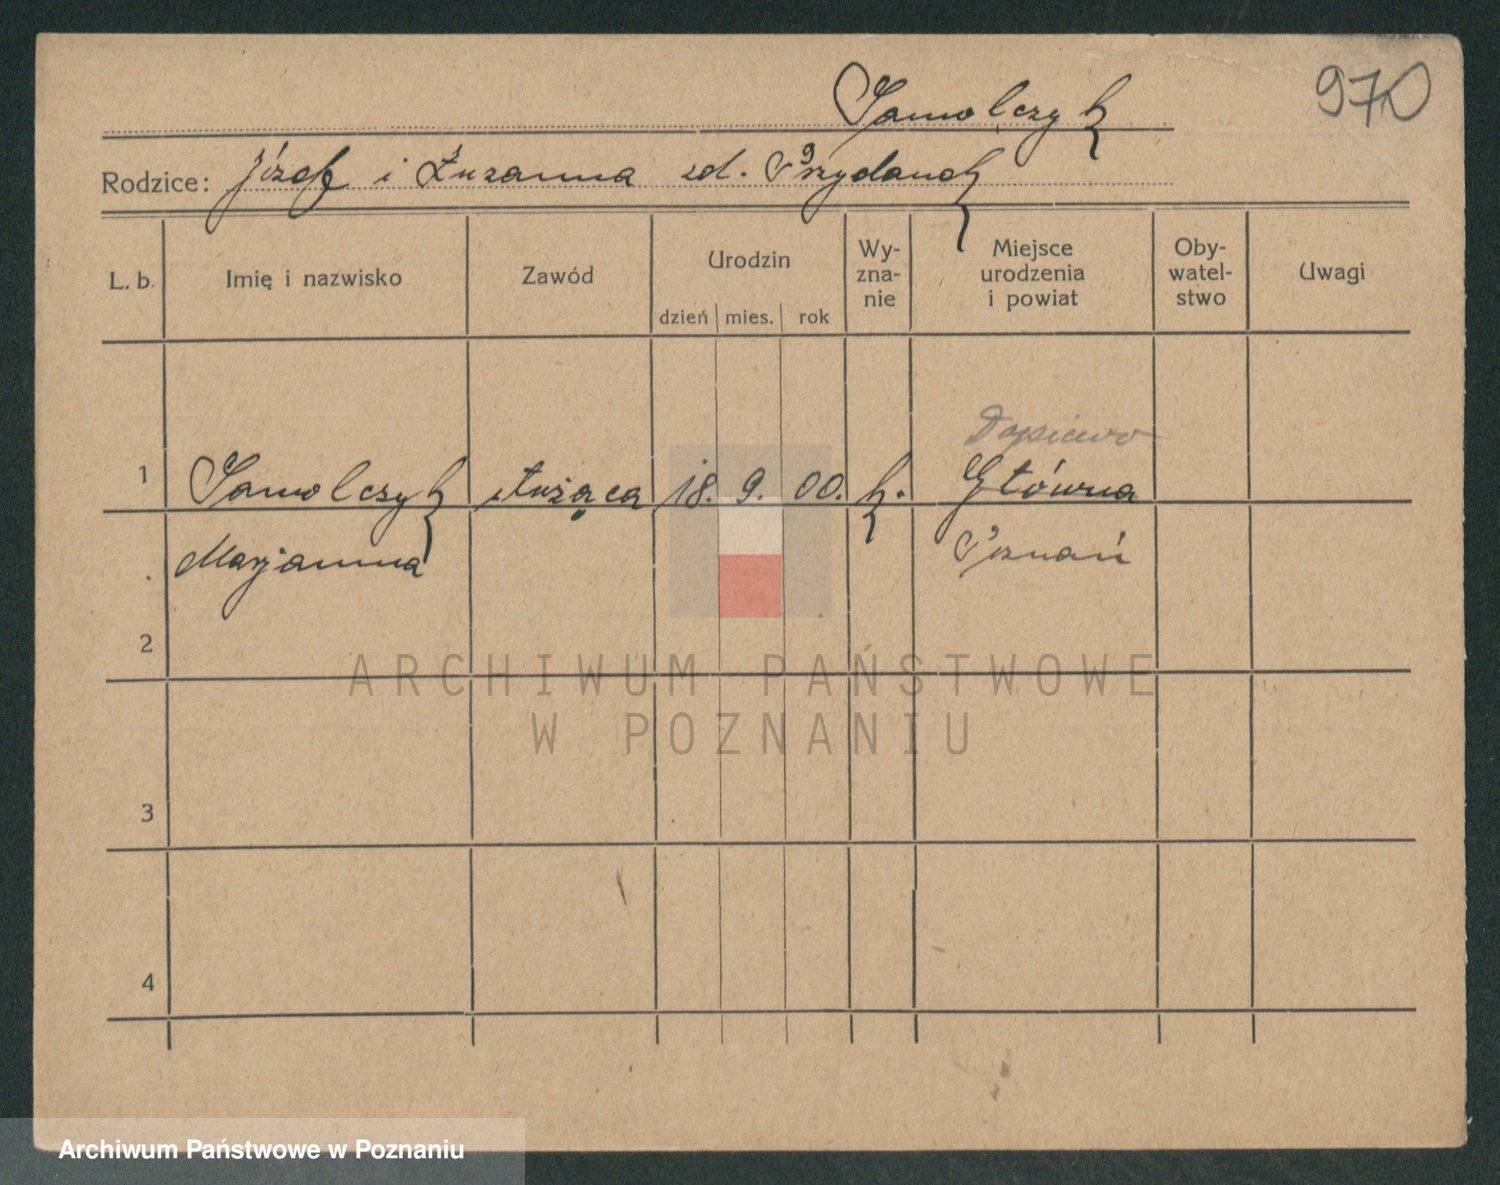 970
Samolczyk
Rodzice: Józef i Zuzanna zd. Przydanek
L. b. Imię i nazwisko Zawód Urodzin dzień mies. rok Wy-zna-nie Miejsce urodzenia i powiat Oby-watel-stwo Uwagi
Dopiewo
1 Samolczyk służąca 18. 9. 00. k. Główna
Marjanna Poznań
2
ARCHIWUM PAŃSTWOWE
W POZNANIU
3
4
Archiwum Państwowe w Poznaniu